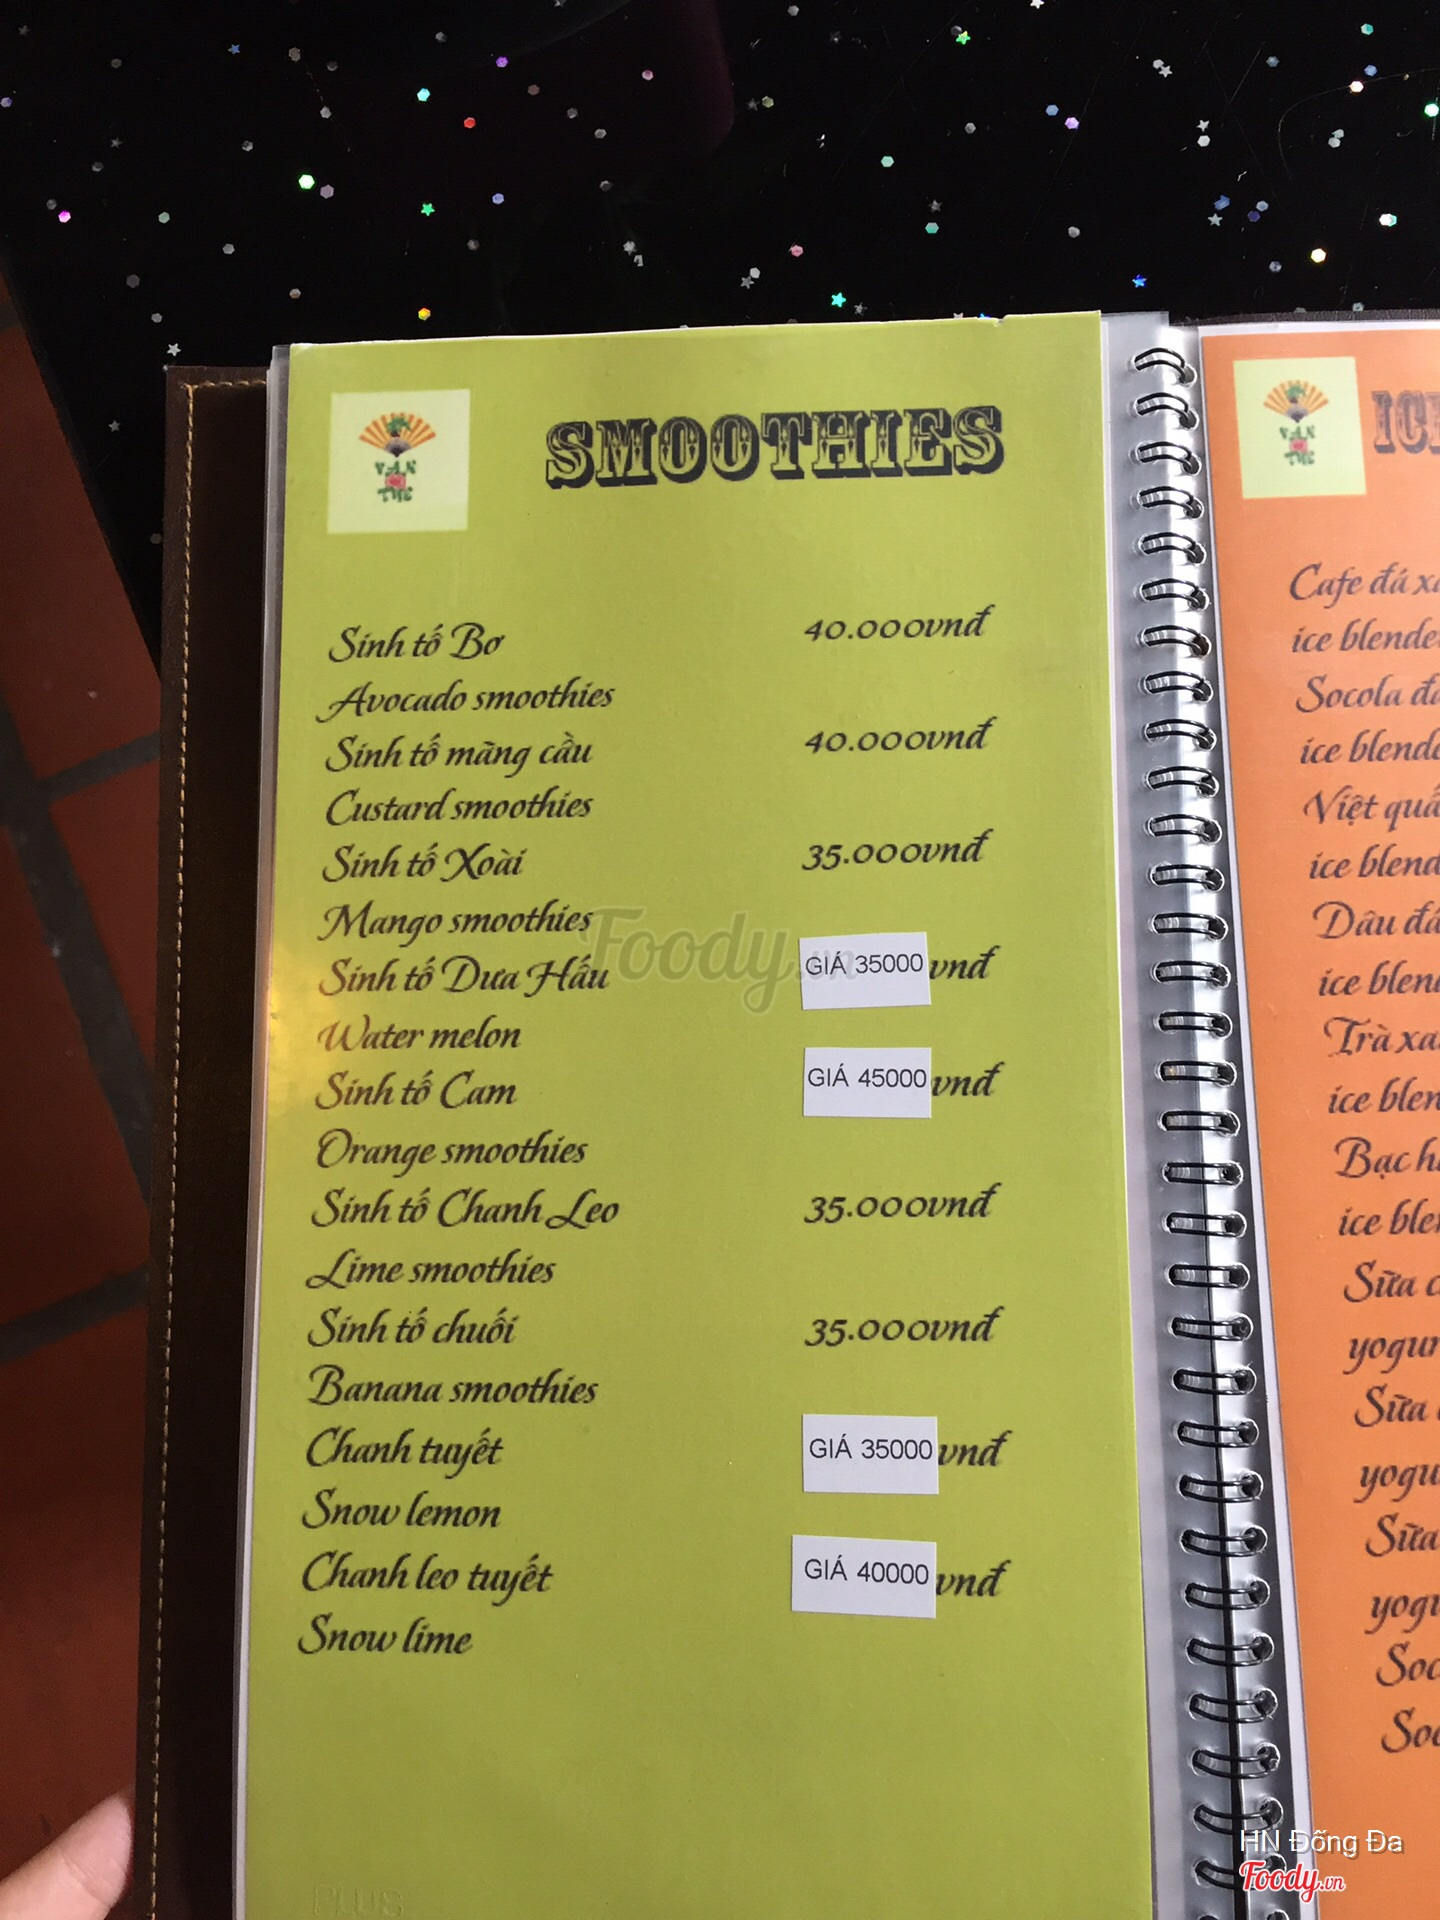 VÂN
THE
SMOOTHIES
Sinh tố Bơ 40.000vnđ
Avocado smoothies
Sinh tố mãng cầu 40.000vnđ
Custard smoothies
Sinh tố Xoài 35.000vnđ
Mango smoothies
Sinh tố Dưa Hấu GIÁ 35000 vnđ
Water melon
Sinh tố Cam GIÁ 45000 vnđ
Orange smoothies
Sinh tố Chanh Leo 35.000vnđ
Lime smoothies
Sinh tố chuối 35.000vnđ
Banana smoothies
Chanh tuyết GIÁ 35000 vnđ
Snow lemon
Chanh leo tuyết GIÁ 40000 vnđ
Snow lime
PLUS
Foody.vn
Cafe đá
ice
Socola
ice
Việt
ice
Dâu
ice
Trà
ice
Bạc
ice
Sữa
Sữa
Sữa
HN Đống Đa
Foody.vn